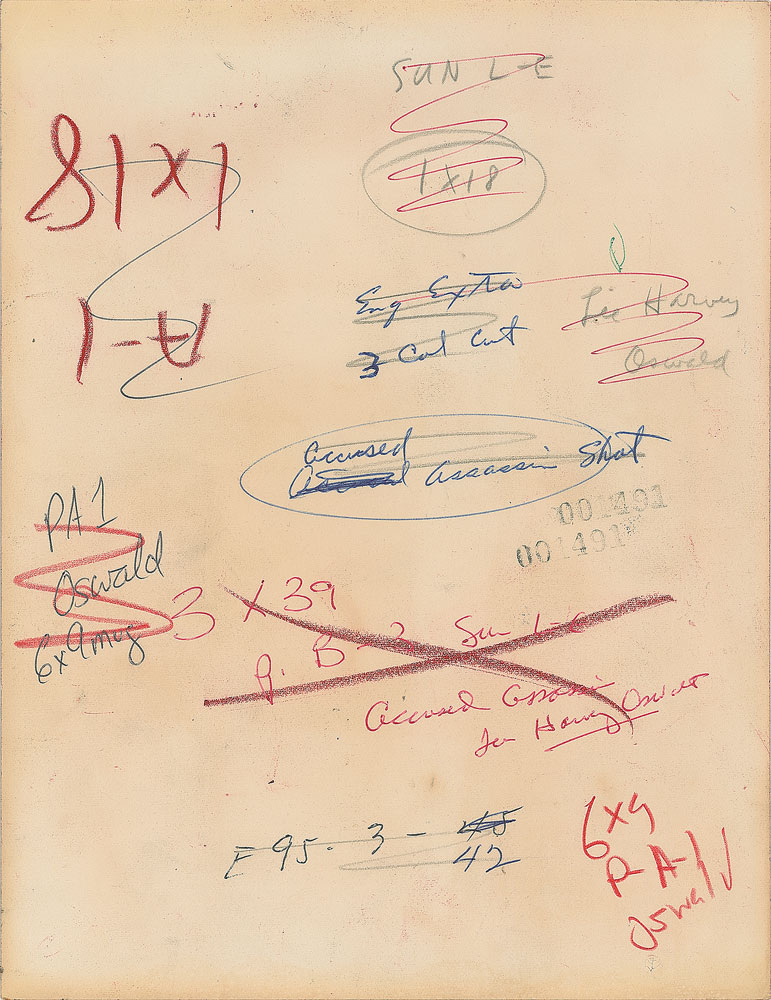 SUN L-E
1x18
1x18
A-1
Eng Extra
3 Col Cut
Lee Harvey
Oswald
accused
Assassin Shot
001491
001491
PA1
Oswald
6x9 mug
3 x 39
P. B-3 Sun L-E
accused assassin
Lee Harvey Oswald
F 95. 3 - 45
42
6x9
P A-1
Oswald